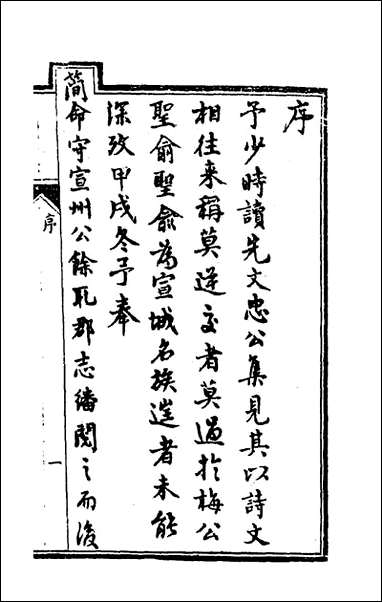 序
予少時讀先文忠公集見其以詩文
相往来稱莫逆交者莫過於梅公
聖俞聖俞為宣城名族遙者未能
深攷甲戌冬予奉
簡命守宣州公餘取郡志繙閱之而後
序
一